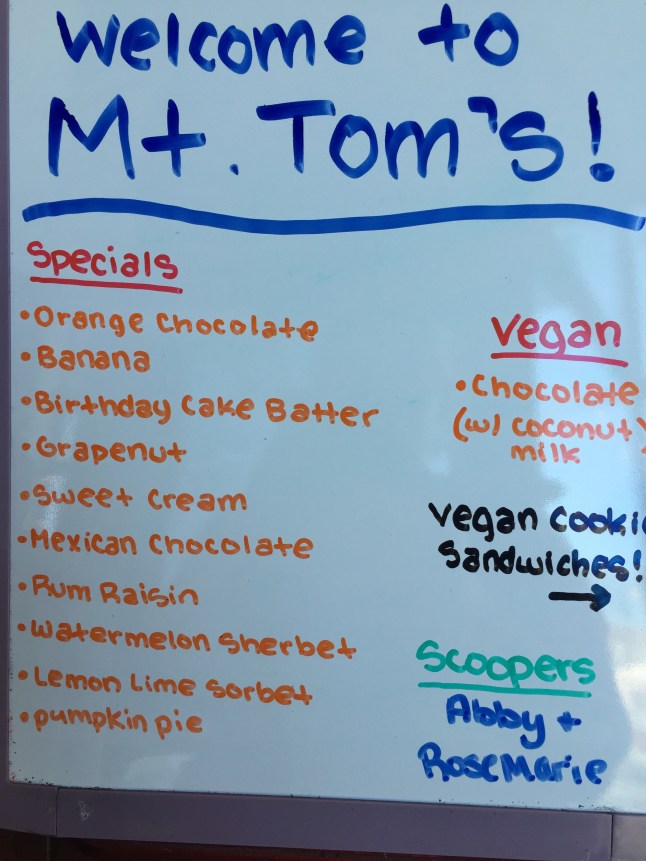 Welcome to
Mt. Tom's!
Specials
• Orange Chocolate
• Banana
• Birthday Cake Batter
• Grapenut
• Sweet Cream
• Mexican Chocolate
• Rum Raisin
• Watermelon Sherbet
• Lemon Lime Sorbet
• pumpkin pie
Vegan
• Chocolate
(w/ coconut
milk
Vegan Cooki
Sandwiches!
→
Scoopers
Abby +
RoseMarie